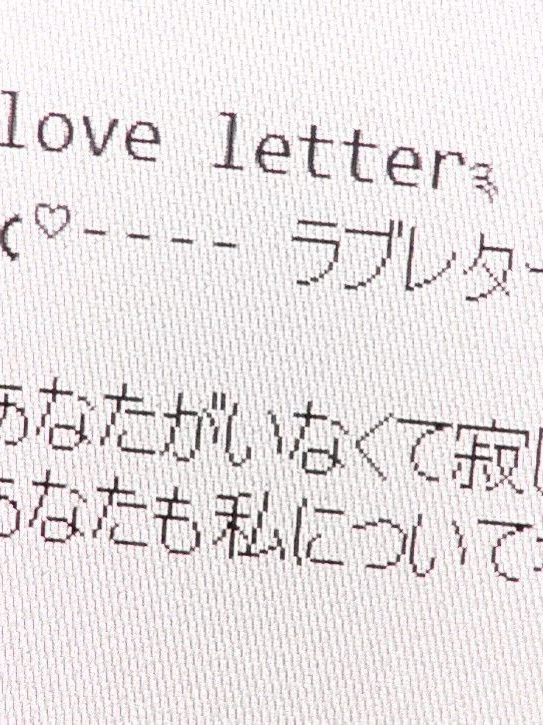 love letter꒱
૮♡---- ラブレター
あなたがいなくて寂し
あなたも私について